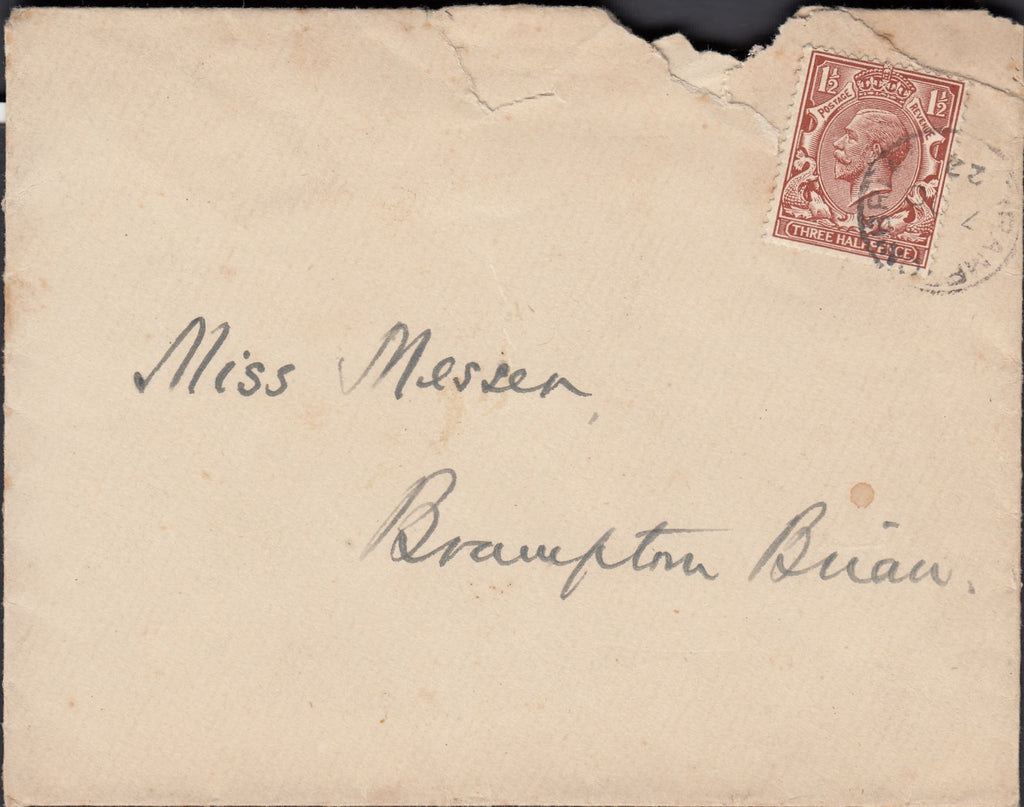 1½ 1½
POSTAGE REVENUE
THREE HALFPENCE
22
7
Miss Messer,
Brampton Brian.